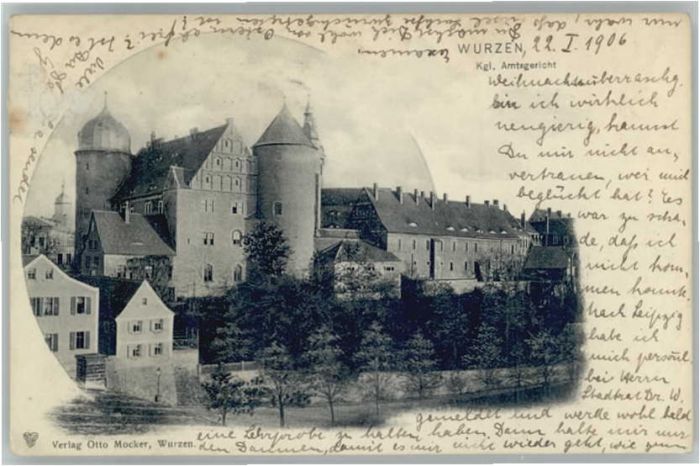 WURZEN, 22. I. 1906
Kgl. Amtsgericht
Weihnachtsüberraschg.
bin ich wirklich
neugierig, kannst
Du mir nicht an,
vertrauen, wer mich
beglückt hat? Es
war zu scha
de, daß ich
nicht kom,
men konnte.
Nach Leipzig
habe ich
mich persönl.
bei Herrn
Stadtrat Dr. W.
gemeldet und werde wohl bald
eine Lehrprobe zu halten haben. Dann halte mir nur
den Daumen, damit es mir nicht wieder geht, wie zum
Examen
nur wohl, daß
Viele
Verlag Otto Mocker, Wurzen.